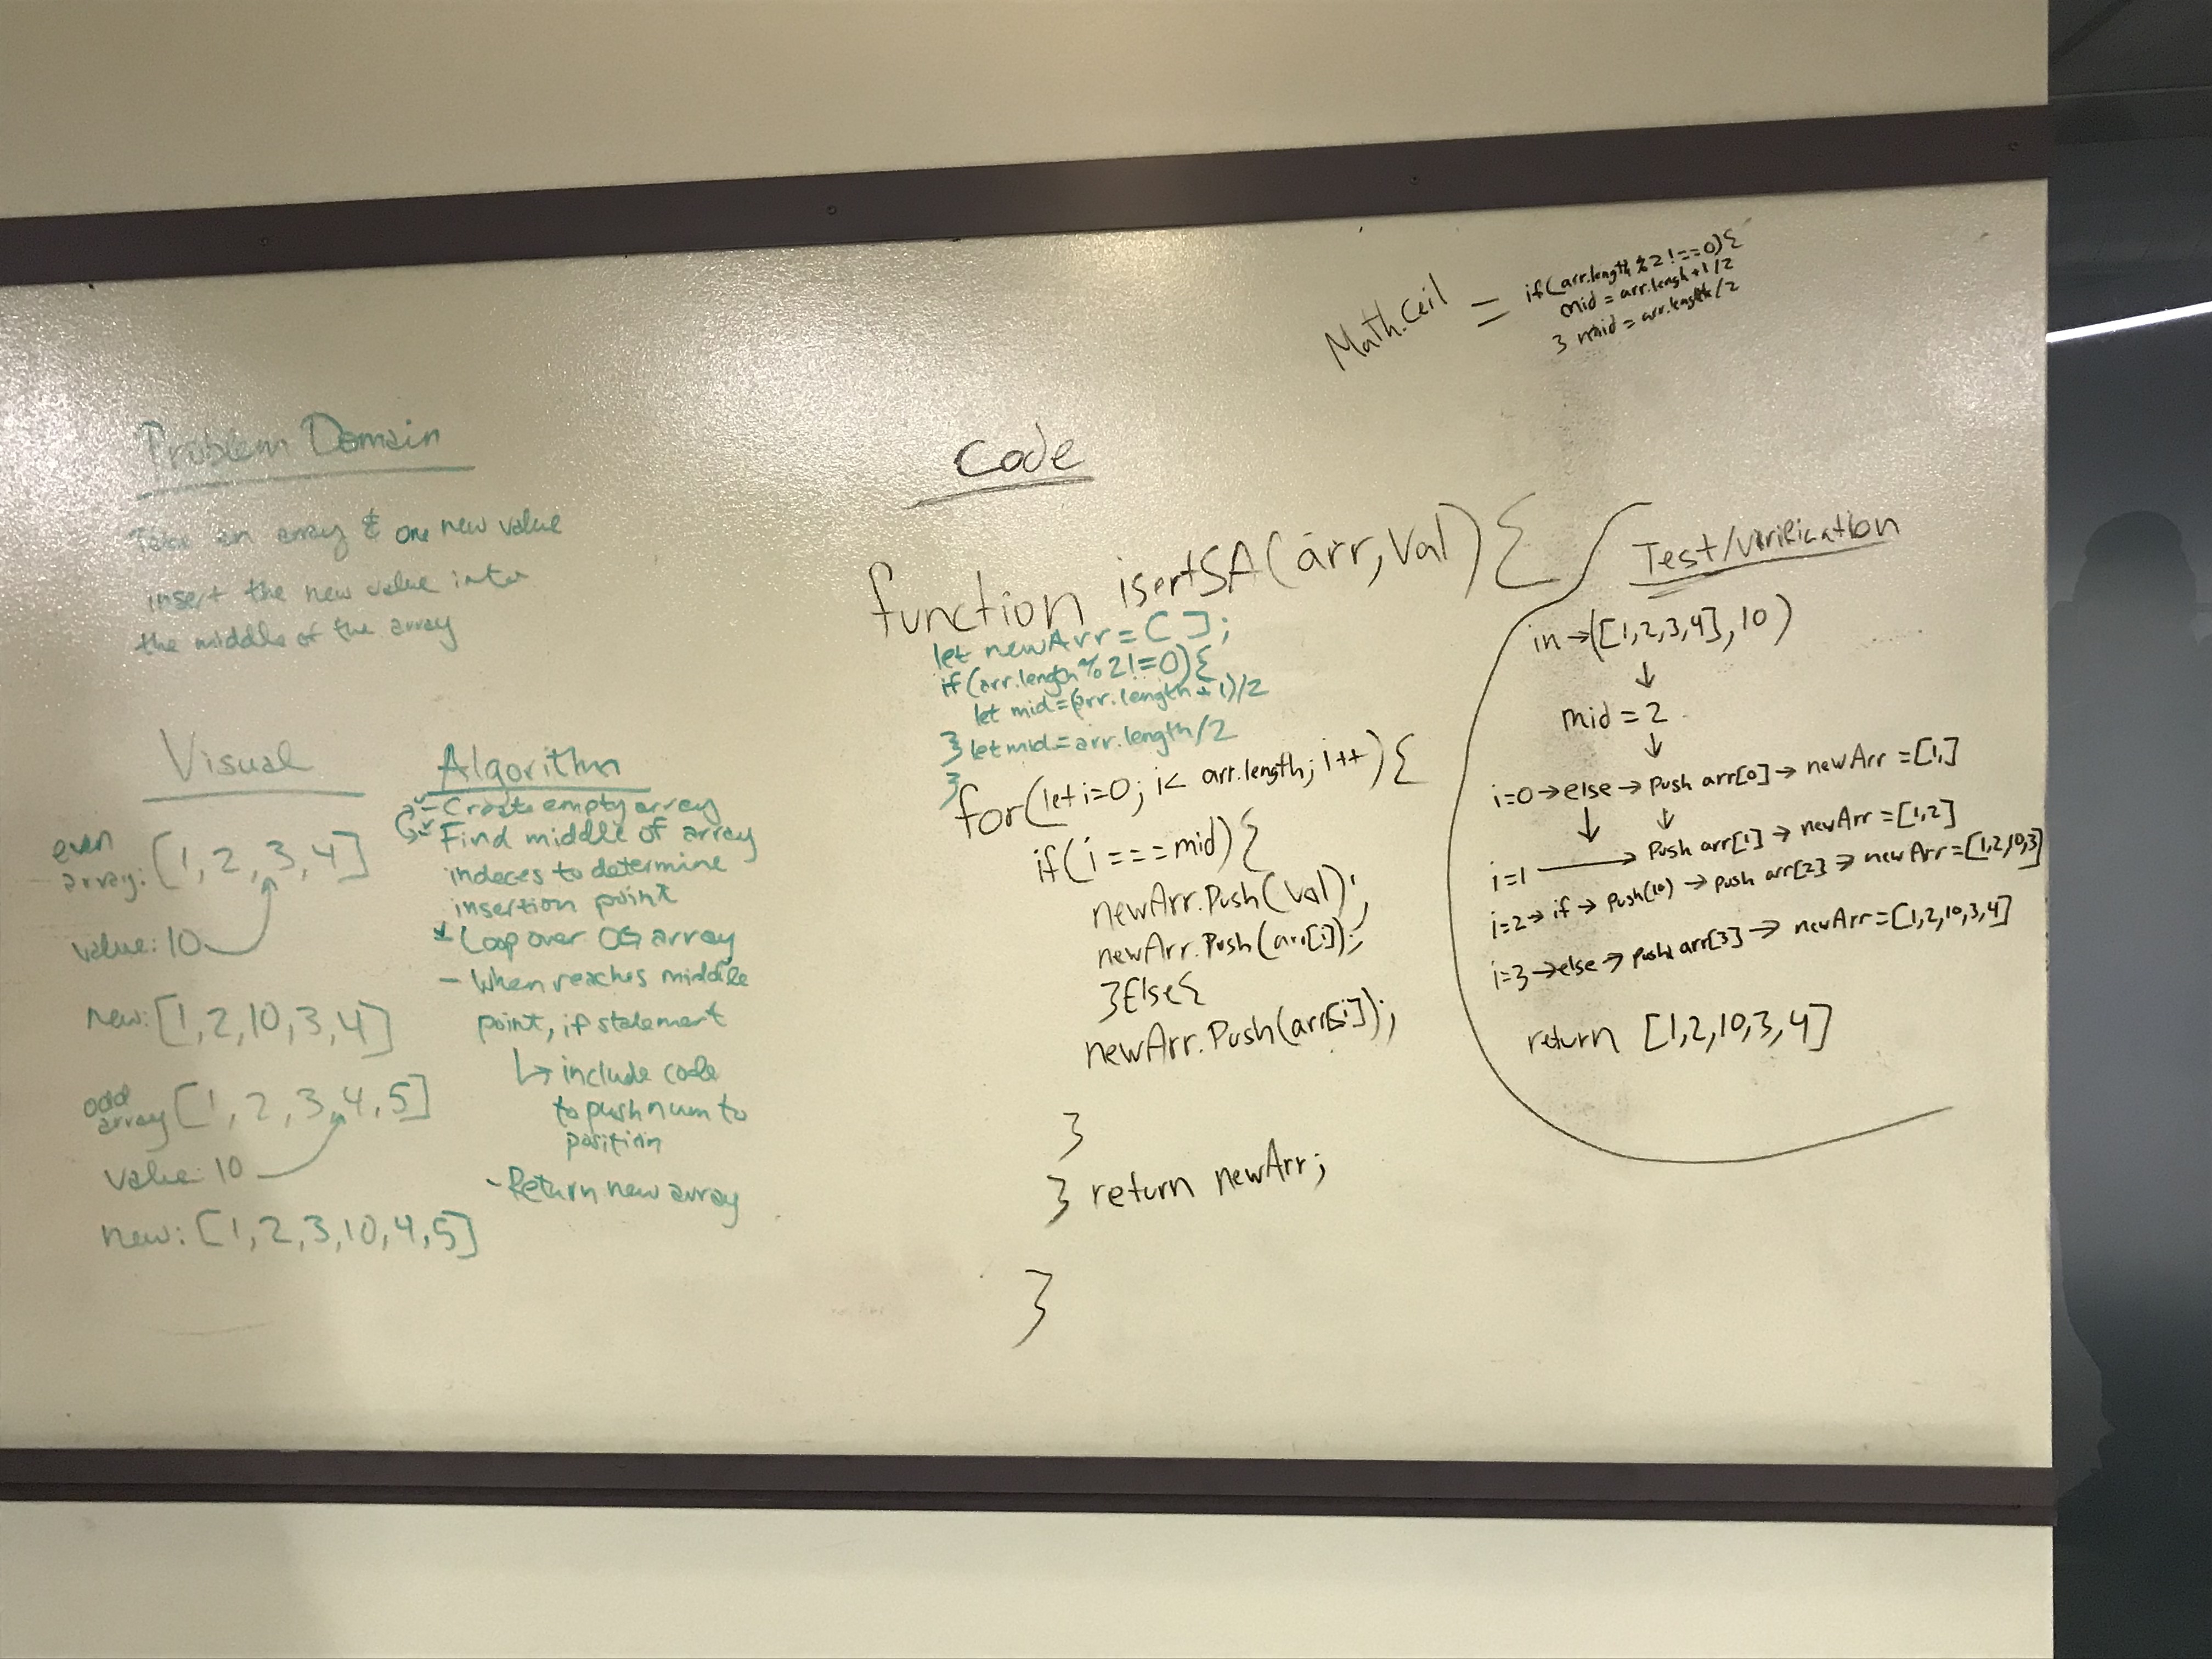 Math.Ceil = if(arr.length % 2 !== 0){
mid = arr.length + 1/2
} mid = arr.length/2
Problem Domain
Take an array & one new value
insert the new value into
the middle of the array
Visual
even
array: [1, 2, 3, 4]
value: 10
new: [1, 2, 10, 3, 4]
odd
array [1, 2, 3, 4, 5]
value: 10
new: [1, 2, 3, 10, 4, 5]
Algorithm
- Create empty array
- Find middle of array
indeces to determine
insertion point
- Loop over OG array
- When reaches middle
point, if statement
↳ include code
to push num to
position
- Return new array
Code
function isertSA(arr, Val) {
let newArr = [ ];
if (arr.length % 2 != 0) {
let mid = (arr.length + 1)/2
} let mid = arr.length/2
}
for(let i=0; i< arr.length; i++) {
if(i === mid) {
newArr.Push(val);
newArr.Push(arr[i]);
}Else{
newArr.Push(arr[i]);
}
} return newArr;
}
Test/Virification
in → ([1,2,3,4], 10)
↓
mid = 2
↓
i=0 → else → Push arr[0] → newArr = [1,]
↓ ↓
i=1 → Push arr[1] → newArr = [1,2]
i=2 → if → push(10) → push arr[2] → newArr = [1,2,10,3]
i=3 → else → push arr[3] → newArr = [1,2,10,3,4]
return [1,2,10,3,4]